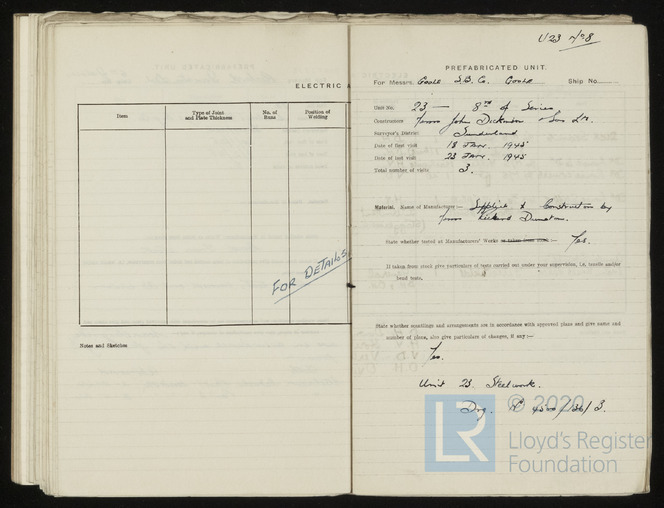 U23 No 8
ELECTRIC A
Item
Type of Joint and Plate Thickness
No. of Runs
Position of Welding
FOR DETAILS
Notes and Sketches
PREFABRICATED UNIT.
For Messrs. Goole S.B. Co. Goole Ship No.
Unit No. 23 — 8th of Series
Constructors Messrs John Dickinson & Sons Ltd.
Surveyor's District Sunderland
Date of first visit 18 JAN. 1945
Date of last visit 23 JAN. 1945
Total number of visits 3.
Material. Name of Manufacturer:— Supplied to Constructors by
Messrs Richard Dunston.
State whether tested at Manufacturers' Works or taken from stock:— Yes.
If taken from stock give particulars of tests carried out under your supervision, i.e. tensile and/or
bend tests.
State whether scantlings and arrangements are in accordance with approved plans and give name and
number of plans, also give particulars of changes, if any:—
Yes.
Unit 23. Steelwork.
Drg. No 4500/36/3.
© 2020
LR
Lloyd's Register
Foundation